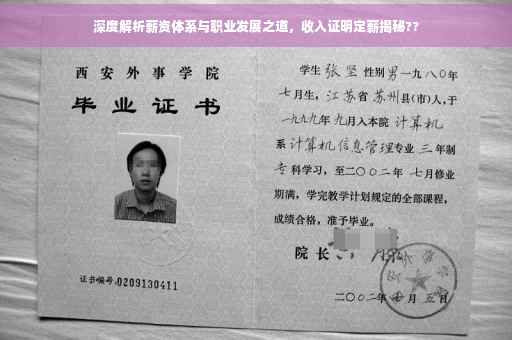 深度解析薪资体系与职业发展之道，收入证明定薪揭秘??
西安外事学院
毕业证书
证书编号:0209130411
学生 张坚 性别男 一九八〇年
七月生，江苏省 苏州县(市)人，于
一九九九年 九月入本院 计算机
系 计算机信息管理专业 三 年制
专 科学习，至二〇〇二年 七月修业
期满，学完教学计划规定的全部课程，
成绩合格，准予毕业。
院长
二〇〇二年 七 月 五 日